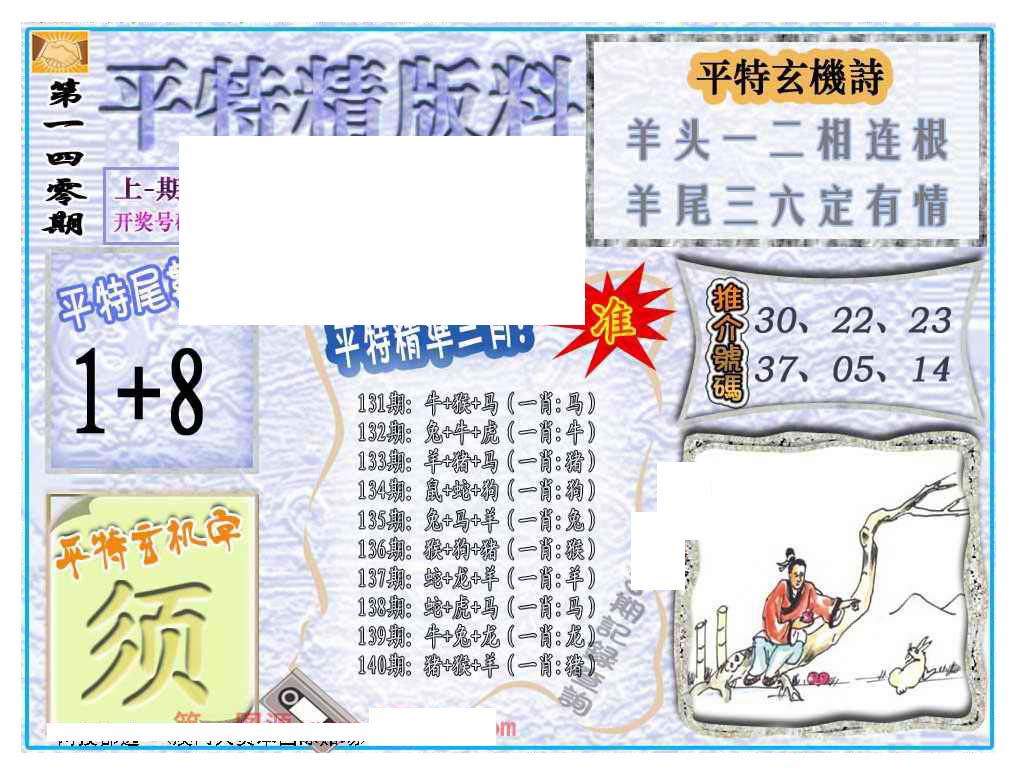 第一四零期
平特精版料
上-期
开奖号
平特玄機詩
羊头一二相连根
羊尾三六定有情
平特尾
1+8
平特精准三肖:
准
推介號碼
30、22、23
37、05、14
131期: 牛+猴+马 (一肖:马)
132期: 兔+牛+虎 (一肖:牛)
133期: 羊+猪+马 (一肖:猪)
134期: 鼠+蛇+狗 (一肖:狗)
135期: 兔+马+羊 (一肖:兔)
136期: 猴+狗+猪 (一肖:猴)
137期: 蛇+龙+羊 (一肖:羊)
138期: 蛇+虎+马 (一肖:马)
139期: 牛+兔+龙 (一肖:龙)
140期: 猪+猴+羊 (一肖:猪)
平特玄机字
须
期記錄查詢